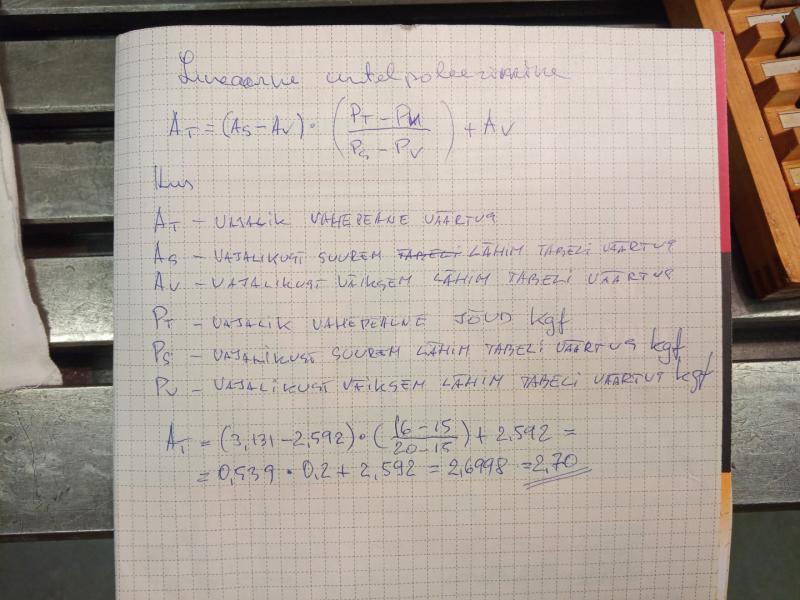 Lineaarne interpoleerimine
A_T = (A_S - A_V) · ( (P_T - P_V) / (P_S - P_V) ) + A_V
Kus
A_T - VAJALIK VAHEPEALNE VÄÄRTUS
A_S - VAJALIKUST SUUREM TABELI LÄHIM TABELI VÄÄRTUS
A_V - VAJALIKUST VÄIKSEM LÄHIM TABELI VÄÄRTUS
P_T - VAJALIK VAHEPEALNE JÕUD kgf
P_S - VAJALIKUST SUUREM LÄHIM TABELI VÄÄRTUS kgf
P_V - VAJALIKUST VÄIKSEM LÄHIM TABELI VÄÄRTUS kgf
A_T = (3,131 - 2,592) · ( (16 - 15) / (20 - 15) ) + 2,592 =
= 0,539 · 0,2 + 2,592 = 2,6998 = 2,70